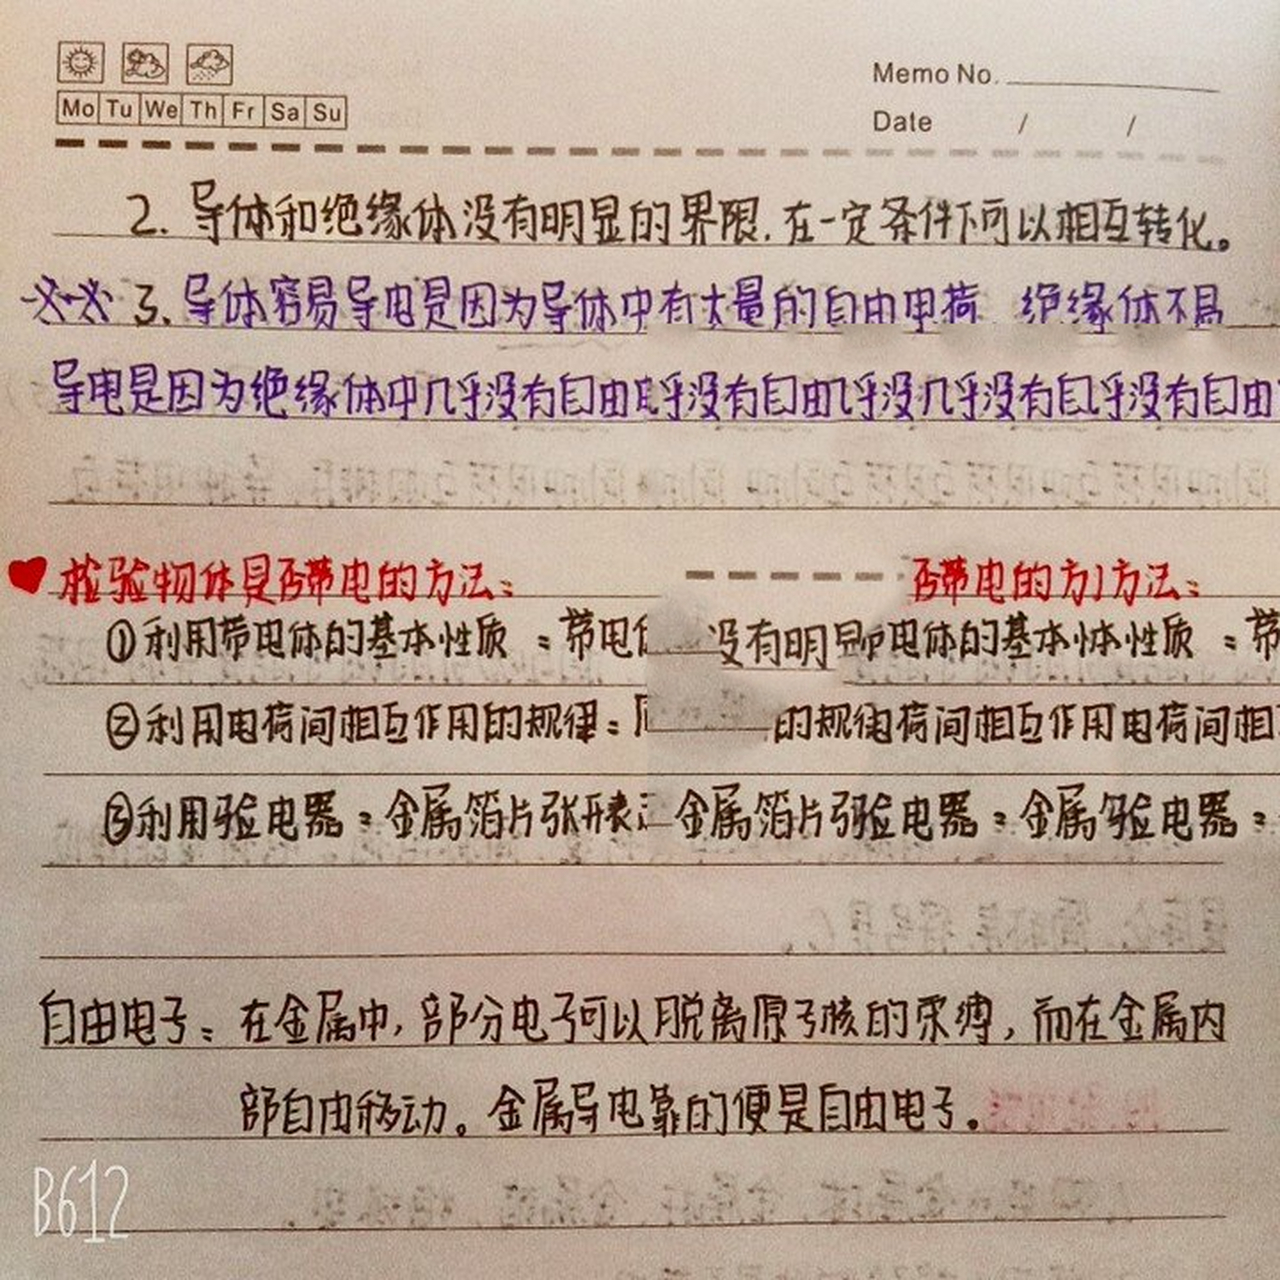 Memo No.
Mo Tu We Th Fr Sa Su
Date / /
2. 导体和绝缘体没有明显的界限.在一定条件下可以相互转化。
3. 导体容易导电是因为导体中有大量的自由电荷 绝缘体不易
导电是因为绝缘体中几乎没有自由 乎没有自由几乎没几乎没有自 乎没有自由
检验物体是否带电的方法: 否带电的方 方法:
①利用带电体的基本性质:带电 没有明显 电体的基本 体性质:带
②利用电荷间相互作用的规律: 的规律 荷间相互作用电荷间相
③利用验电器:金属箔片张开表 金属箔片 验电器:金属 验电器:
自由电子:在金属中,部分电子可以脱离原子核的束缚,而在金属内
部自由移动。金属导电靠的便是自由电子.
B612